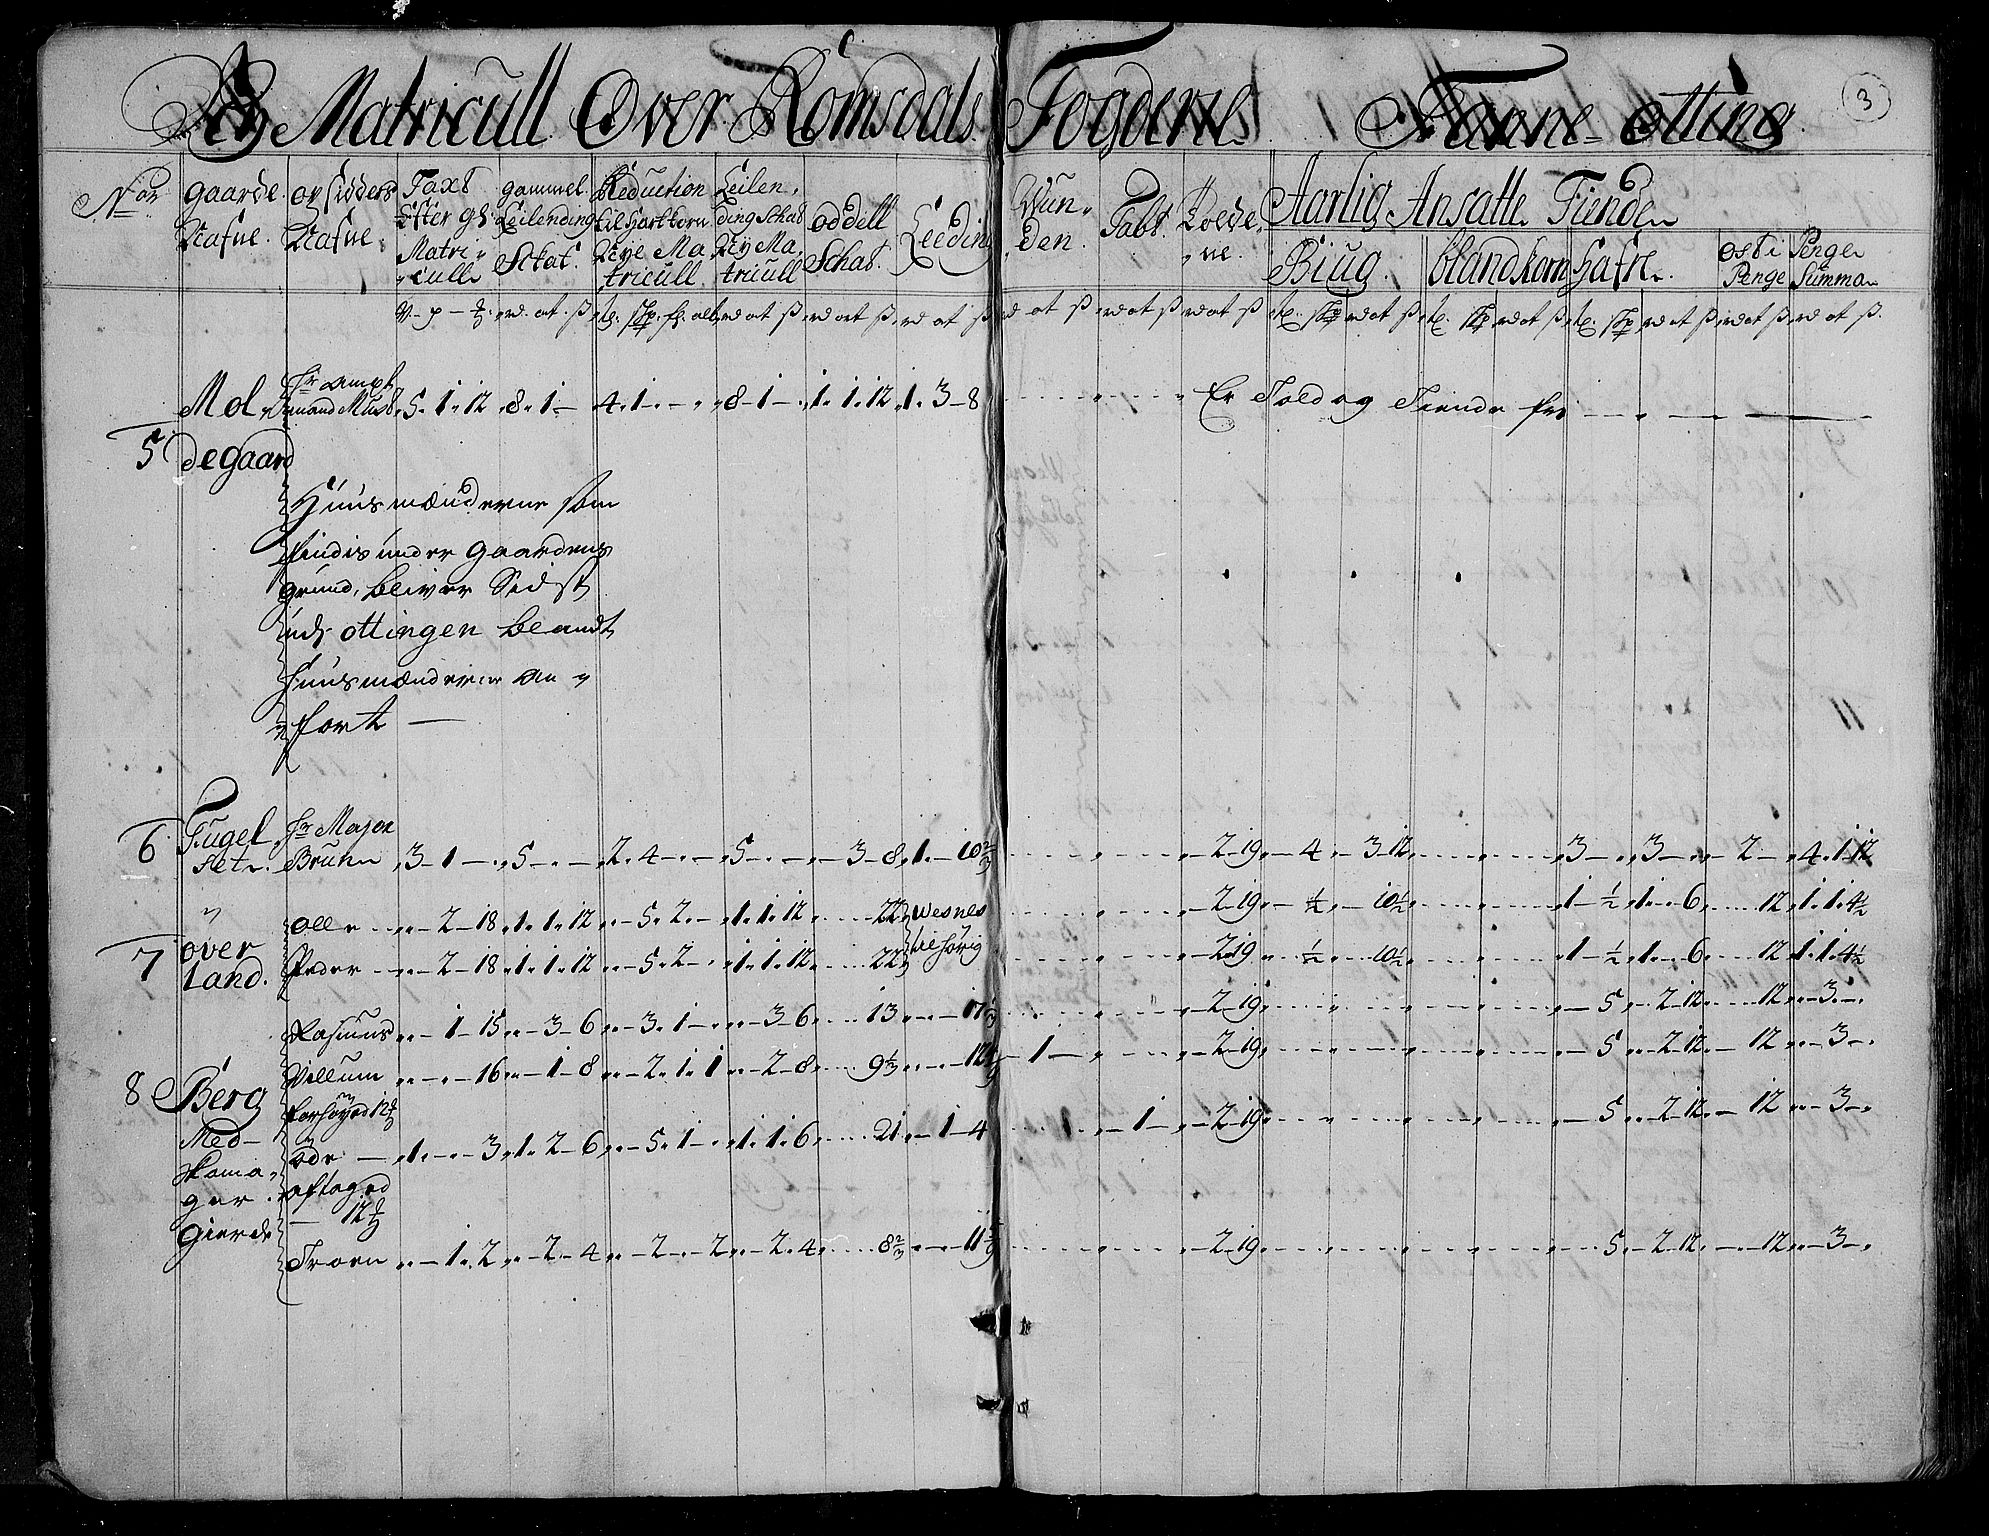 Matricull Over Romsdals Fogderie Fanne-otting
3
No gaarde Nafne. opsidders Nafne. Taxt Efter gl: Matricull gammel Leilending Skat. Reduction til Hartkorn Nÿe Matricull Leilending Schat Nÿ Matricull oddell Schat. Leeding Wunden. Tabt. Roedene. Aarlig Ansatte Tienden
Biug. blandkorn Hafre. osti Penge Penge Summa
Mol- 5. 1. 12 8. 1 4. 1 8-1 1. 1. 12 1. 3-8 Er Told og Tiende frj
5 degaard
Huusmænderne som
findis under gaardens
grund, bliver Sidst
udj ottingen blandt
huusmænderne an-
fört
6 Fugelsetr. Hr Major Bruun 3-1 5 2. 4 5 3-8 1. 10 2/3 2-19 4 3-12 3 3 2 4. 1. 12
7 over land. olle 2-18 1. 1. 12 5. 2 1. 1. 12 22 Wesnes 2-19 1/2 10 1/2 1 1/2 1. 6 12 1. 1. 4 1/2
Peder 2-18 1. 1. 12 5. 2 1. 1. 12 22 tilhörig 2-19 1/2 10 1/2 1 1/2 1. 6 12 1. 1. 4 1/2
Rasmus 1-15 3-6 3. 1 3-6 13 17 1/3 2-19 5 2-12 12 3
8 Berg Villum 16 1-8 2. 1. 1 2-8 9 1/3 12 1 2-19 5 2-12 12 3
Med forhöyed 12
öde 1. 3 1. 2-6 5. 1 1. 1. 6 21 1-4 1 2-19 5 2-12 12 3
aftaged
12
gierde Troen 1. 2 2-4 2 2 2. 4 8 2/3 11 2-19 5 2-12 12 3